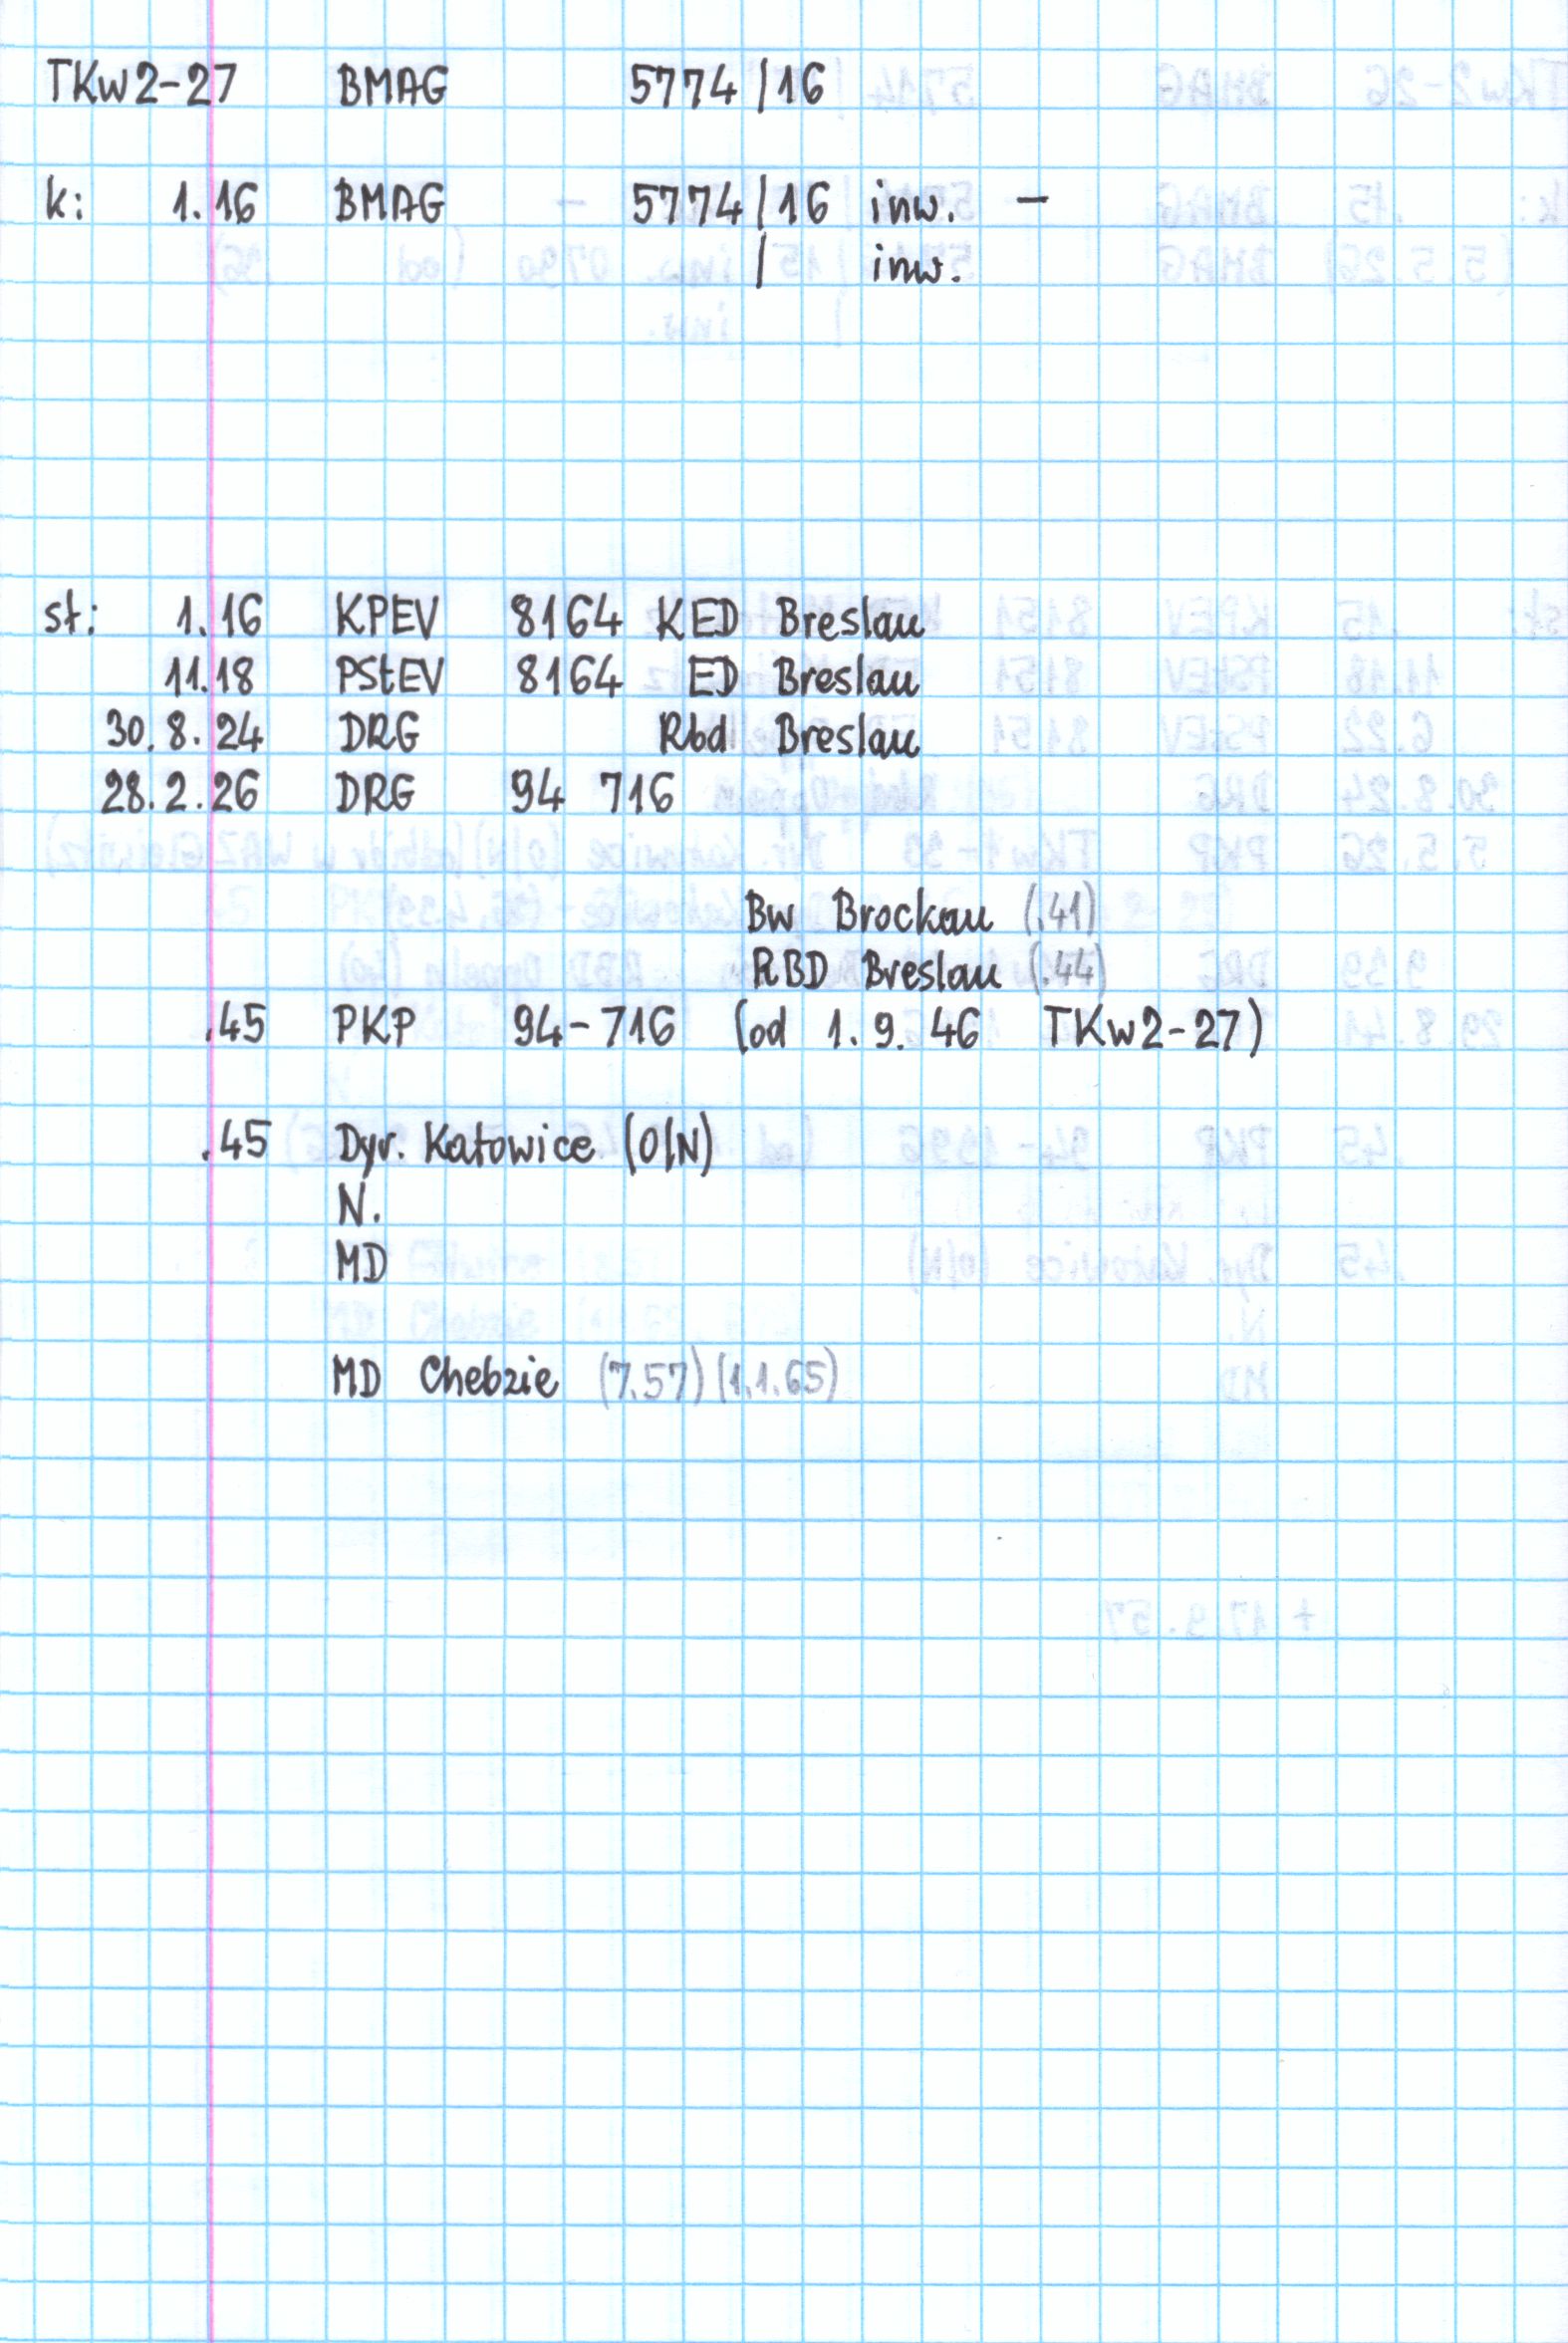 TKw2-27 BMAG 5774/16
k: 1.16 BMAG - 5774/16 inw. -
/ inw.
st: 1.16 KPEV 8164 KED Breslau
11.18 PStEV 8164 ED Breslau
30.8.24 DRG Rbd Breslau
28.2.26 DRG 94 716
Bw Brockau (.41)
RBD Breslau (.44)
.45 PKP 94-716 (od 1.9.46 TKw2-27)
.45 Dyr. Katowice (O/N)
N.
MD
MD Chebzie (7.57) (1.1.65)